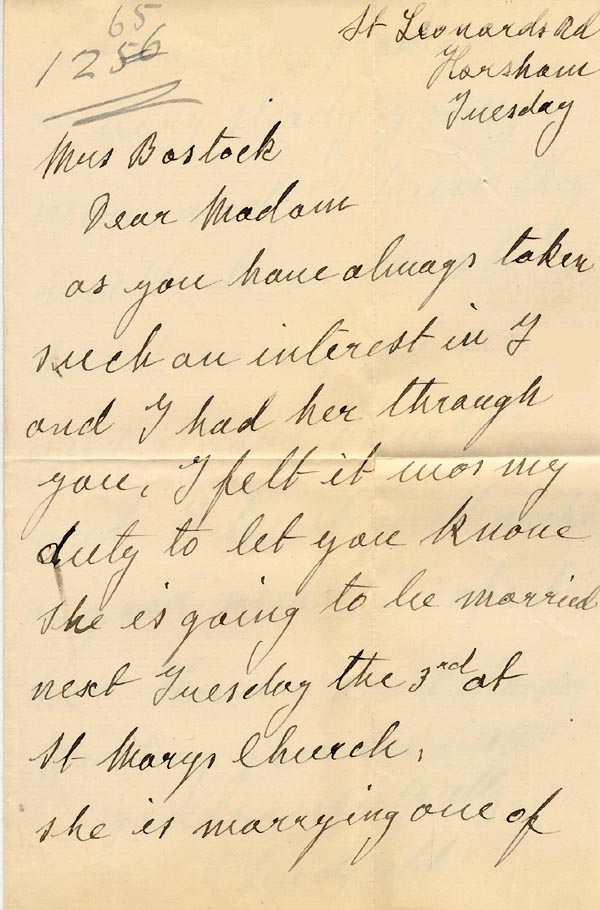 65
1256
St Leonards Rd
Horsham
Tuesday
Mrs Bostock
Dear Madam
as you have always taken
such an interest in I
and I had her through
you, I felt it was my
duty to let you know
she is going to be married
next Tuesday the 3rd at
St Marys Church,
she is marrying one of